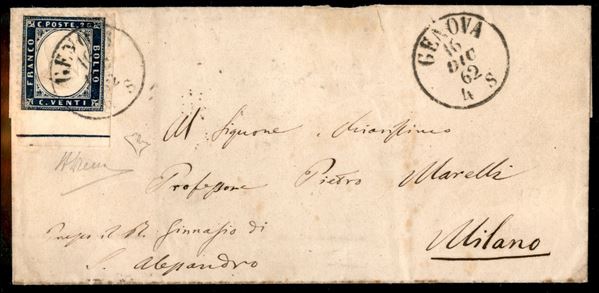 C. POSTE 20
FRANCO
BOLLO
C. VENTI
GENO
GENOVA
16
DIC
62
4 S
Al Signore Chiarissimo
Professore Pietro Marelli
Presso il R. Ginnasio di
S. Alessandro
Milano